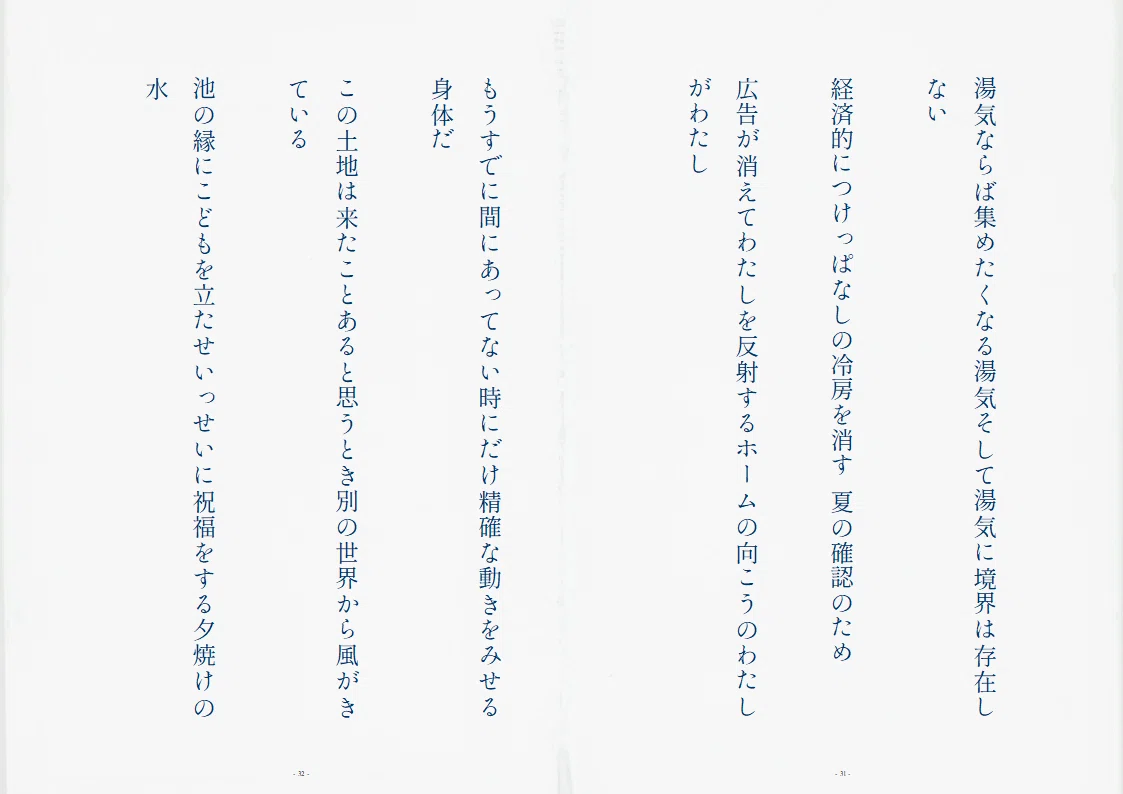 湯気ならば集めたくなる湯気そして湯気に境界は存在し
ない
経済的につけっぱなしの冷房を消す 夏の確認のため
広告が消えてわたしを反射するホームの向こうのわたし
がわたし
- 31 -
もうすでに間にあってない時にだけ精確な動きをみせる
身体だ
この土地は来たことあると思うとき別の世界から風がき
ている
池の縁にこどもを立たせいっせいに祝福をする夕焼けの
水
- 32 -